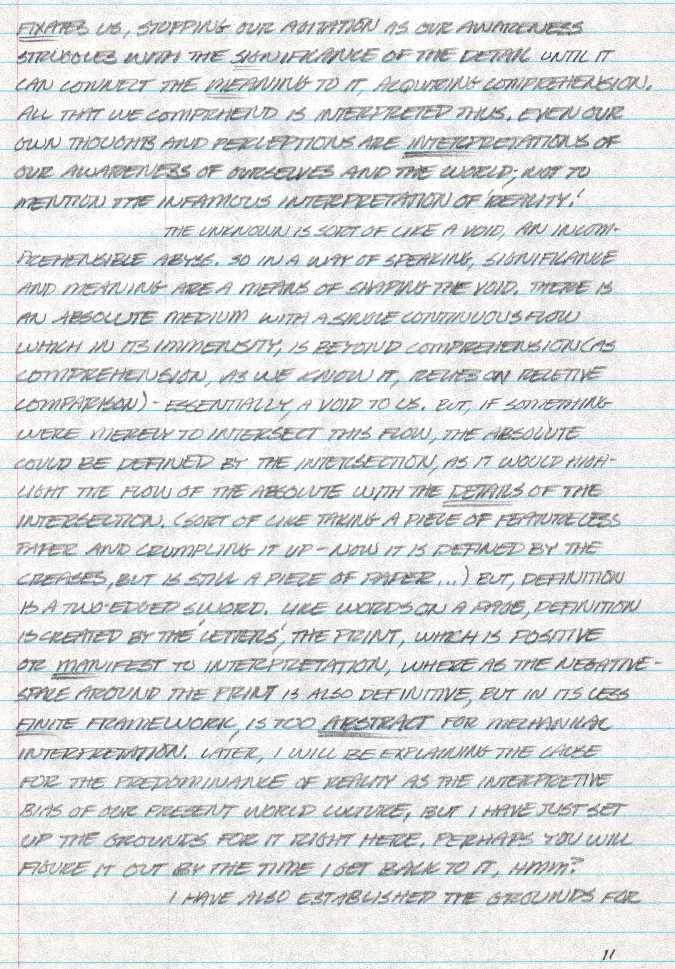 FIXATES US, STOPPING OUR AGITATION AS OUR AWARENESS
STRUGGLES WITH THE SIGNIFICANCE OF THE DETAIL UNTIL IT
CAN CONNECT THE MEANING TO IT, ACQUIRING COMPREHENSION.
ALL THAT WE COMPRHEND IS INTERPRETED THUS. EVEN OUR
OWN THOUGHTS AND PERCEPTIONS ARE INTERPRETATIONS OF
OUR AWARENESS OF OURSELVES AND THE WORLD; NOT TO
MENTION THE INFAMOUS INTERPRETATION OF 'REALITY.'
THE UNKNOWN IS SORT OF LIKE A VOID, AN INCOM-
PREHENSIBLE ABYSS. SO IN A WAY OF SPEAKING, SIGNIFICANCE
AND MEANING ARE A MEANS OF SHAPING THE VOID. THERE IS
AN ABSOLUTE MEDIUM WITH A SINGLE CONTINUOUS FLOW
WHICH IN ITS IMMENSITY, IS BEYOND COMPREHENSION (AS
COMPREHENSION, AS WE KNOW IT, RELIES ON RELETIVE
COMPARISON) - ESSENTIALLY, A VOID TO US. BUT, IF SOMETHING
WERE MERELY TO INTERSECT THIS FLOW, THE ABSOLUTE
COULD BE DEFINED BY THE INTERSECTION, AS IT WOULD HIGH-
LIGHT THE FLOW OF THE ABSOLUTE WITH THE DETAILS OF THE
INTERSECTION. (SORT OF LIKE TAKING A PIECE OF FEATURELESS
PAPER AND CRUMPLING IT UP - NOW IT IS DEFINED BY THE
CREASES, BUT IS STILL A PIECE OF PAPER...) BUT, DEFINITION
IS A TWO-EDGED SWORD. LIKE WORDS ON A PAGE, DEFINITION
IS CREATED BY THE 'LETTERS', THE PRINT, WHICH IS POSITIVE
OR MANIFEST TO INTERPRETATION, WHERE AS THE NEGATIVE-
SPACE AROUND THE PRINT IS ALSO DEFINITIVE, BUT IN ITS LESS
FINITE FRAMEWORK, IS TOO ABSTRACT FOR MECHANICAL
INTERPRETATION. LATER, I WILL BE EXPLAINING THE CAUSE
FOR THE PREDOMINANCE OF REALITY AS THE INTERPRETIVE
BIAS OF OUR PRESENT WORLD CULTURE, BUT I HAVE JUST SET
UP THE GROUNDS FOR IT RIGHT HERE. PERHAPS YOU WILL
FIGURE IT OUT BY THE TIME I GET BACK TO IT, HMM?
I HAVE ALSO ESTABLISHED THE GROUNDS FOR
11